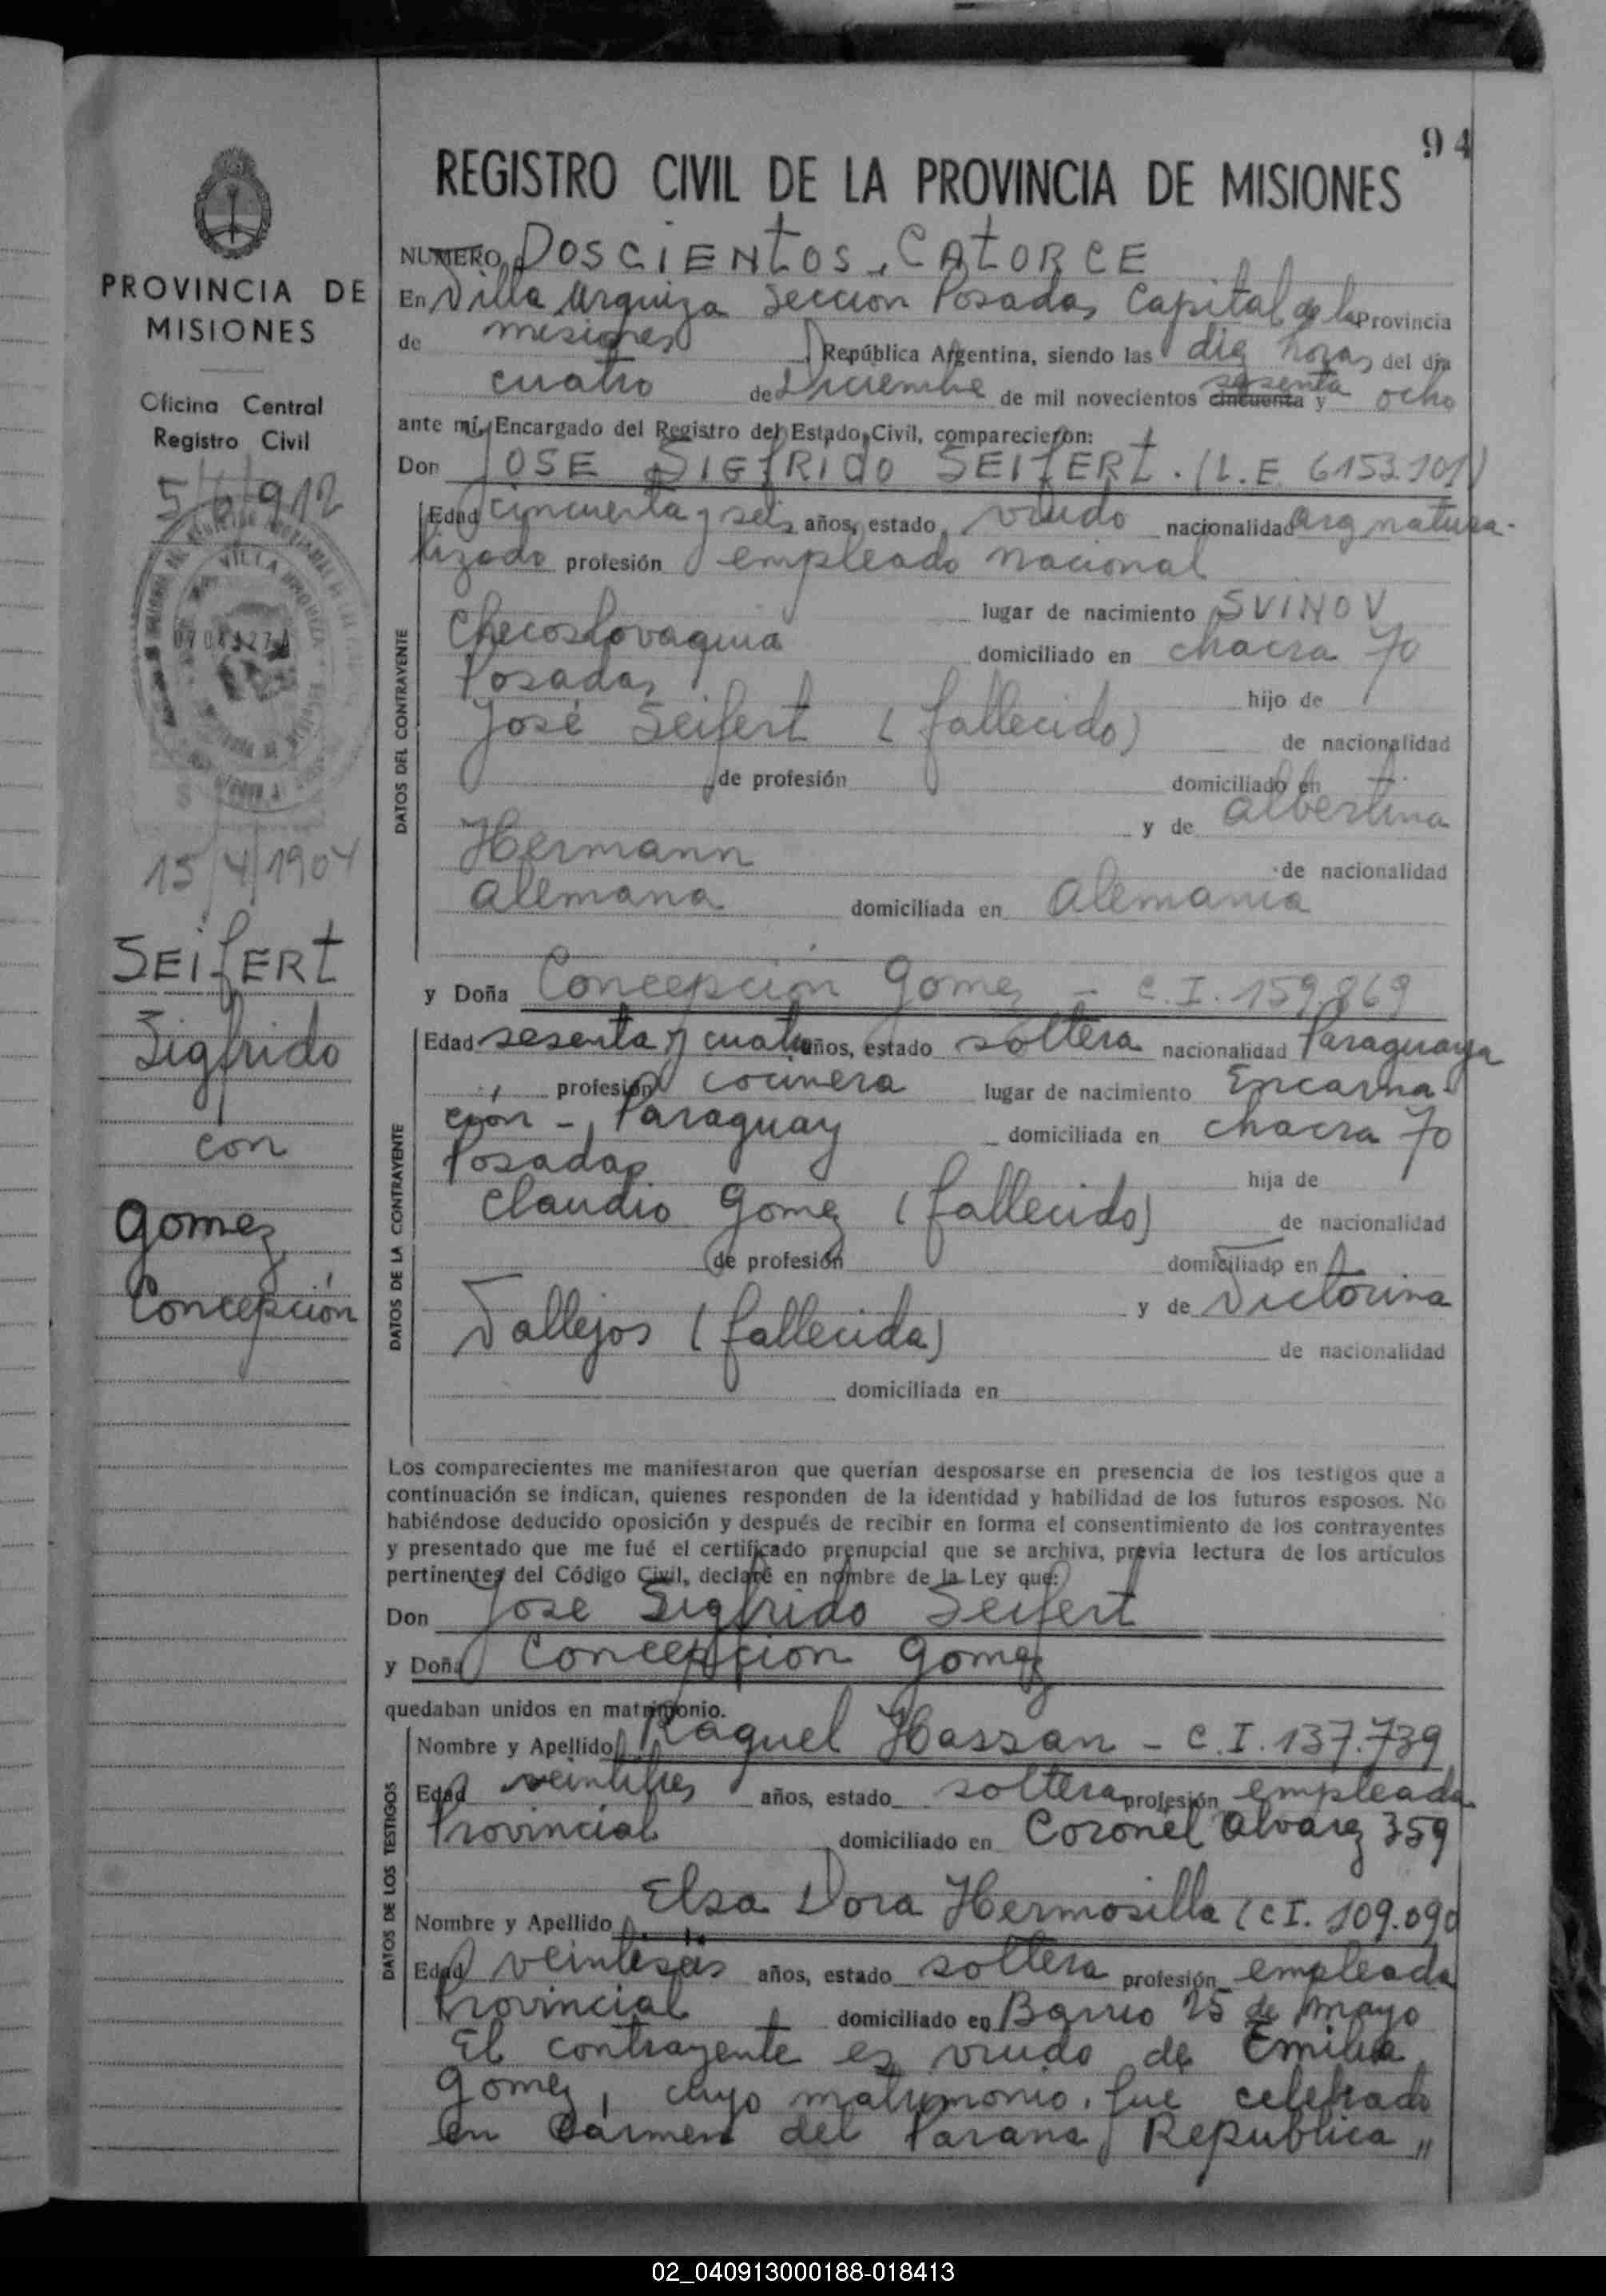 94
REGISTRO CIVIL DE LA PROVINCIA DE MISIONES
PROVINCIA DE
MISIONES
Oficina Central
Registro Civil
5/6/912
VILLA URQUIZA
15/4/1904
SEifERt
Sigfrido
con
Gomez
Concepción
NUMERO DOSCIENtOS, CAtORCE
En Villa Urquiza Seccion Posadas Capital de la Provincia
de misiones República Argentina, siendo las diez horas del día
cuatro de Diciembre de mil novecientos cincuenta sesenta y ocho
ante mí, Encargado del Registro del Estado Civil, comparecieron:
Don JOSE SIGfRIdO SEIfERt. (L.E. 6153.101)
Edad cincuenta y seis años, estado viudo nacionalidad arg natura-
lizado profesión empleado nacional
lugar de nacimiento SVINOV
Checoslovaquia domiciliado en chacra 70
Posadas hijo de
José Seifert (fallecido) de nacionalidad
de profesión domiciliado en
y de Albertina
Hermann de nacionalidad
alemana domiciliada en Alemania
y Doña Concepción Gomez - C.I. 159.869
Edad sesenta y cuatro años, estado soltera nacionalidad Paraguaya
profesión cocinera lugar de nacimiento Encarna-
cion - Paraguay domiciliada en chacra 70
Posadas hija de
Claudio Gomez (fallecido) de nacionalidad
de profesión domiciliado en
y de Victorina
Vallejos (fallecida) de nacionalidad
domiciliada en
DATOS DEL CONTRAYENTE
DATOS DE LA CONTRAYENTE
Los comparecientes me manifestaron que querían desposarse en presencia de los testigos que a
continuación se indican, quienes responden de la identidad y habilidad de los futuros esposos. No
habiéndose deducido oposición y después de recibir en forma el consentimiento de los contrayentes
y presentado que me fué el certificado prenupcial que se archiva, previa lectura de los artículos
pertinentes del Código Civil, declaré en nombre de la Ley que:
Don Jose Sigfrido Seifert
y Doña Concepcion Gomez
quedaban unidos en matrimonio.
DATOS DE LOS TESTIGOS
Nombre y Apellido Raquel Hassan - C.I. 137.739
Edad veintitres años, estado soltera profesión empleada
Provincial domiciliado en Coronel Alvarez 359
Nombre y Apellido Elsa Dora Hermosilla (CI. 109.090
Edad veintiseis años, estado soltera profesión empleada
Provincial domiciliado en Barrio 25 de Mayo
El contrayente es viudo de Emilia
Gomez, cuyo matrimonio, fue celebrado
en Carmen del Parana, Republica "
02_040913000188-018413